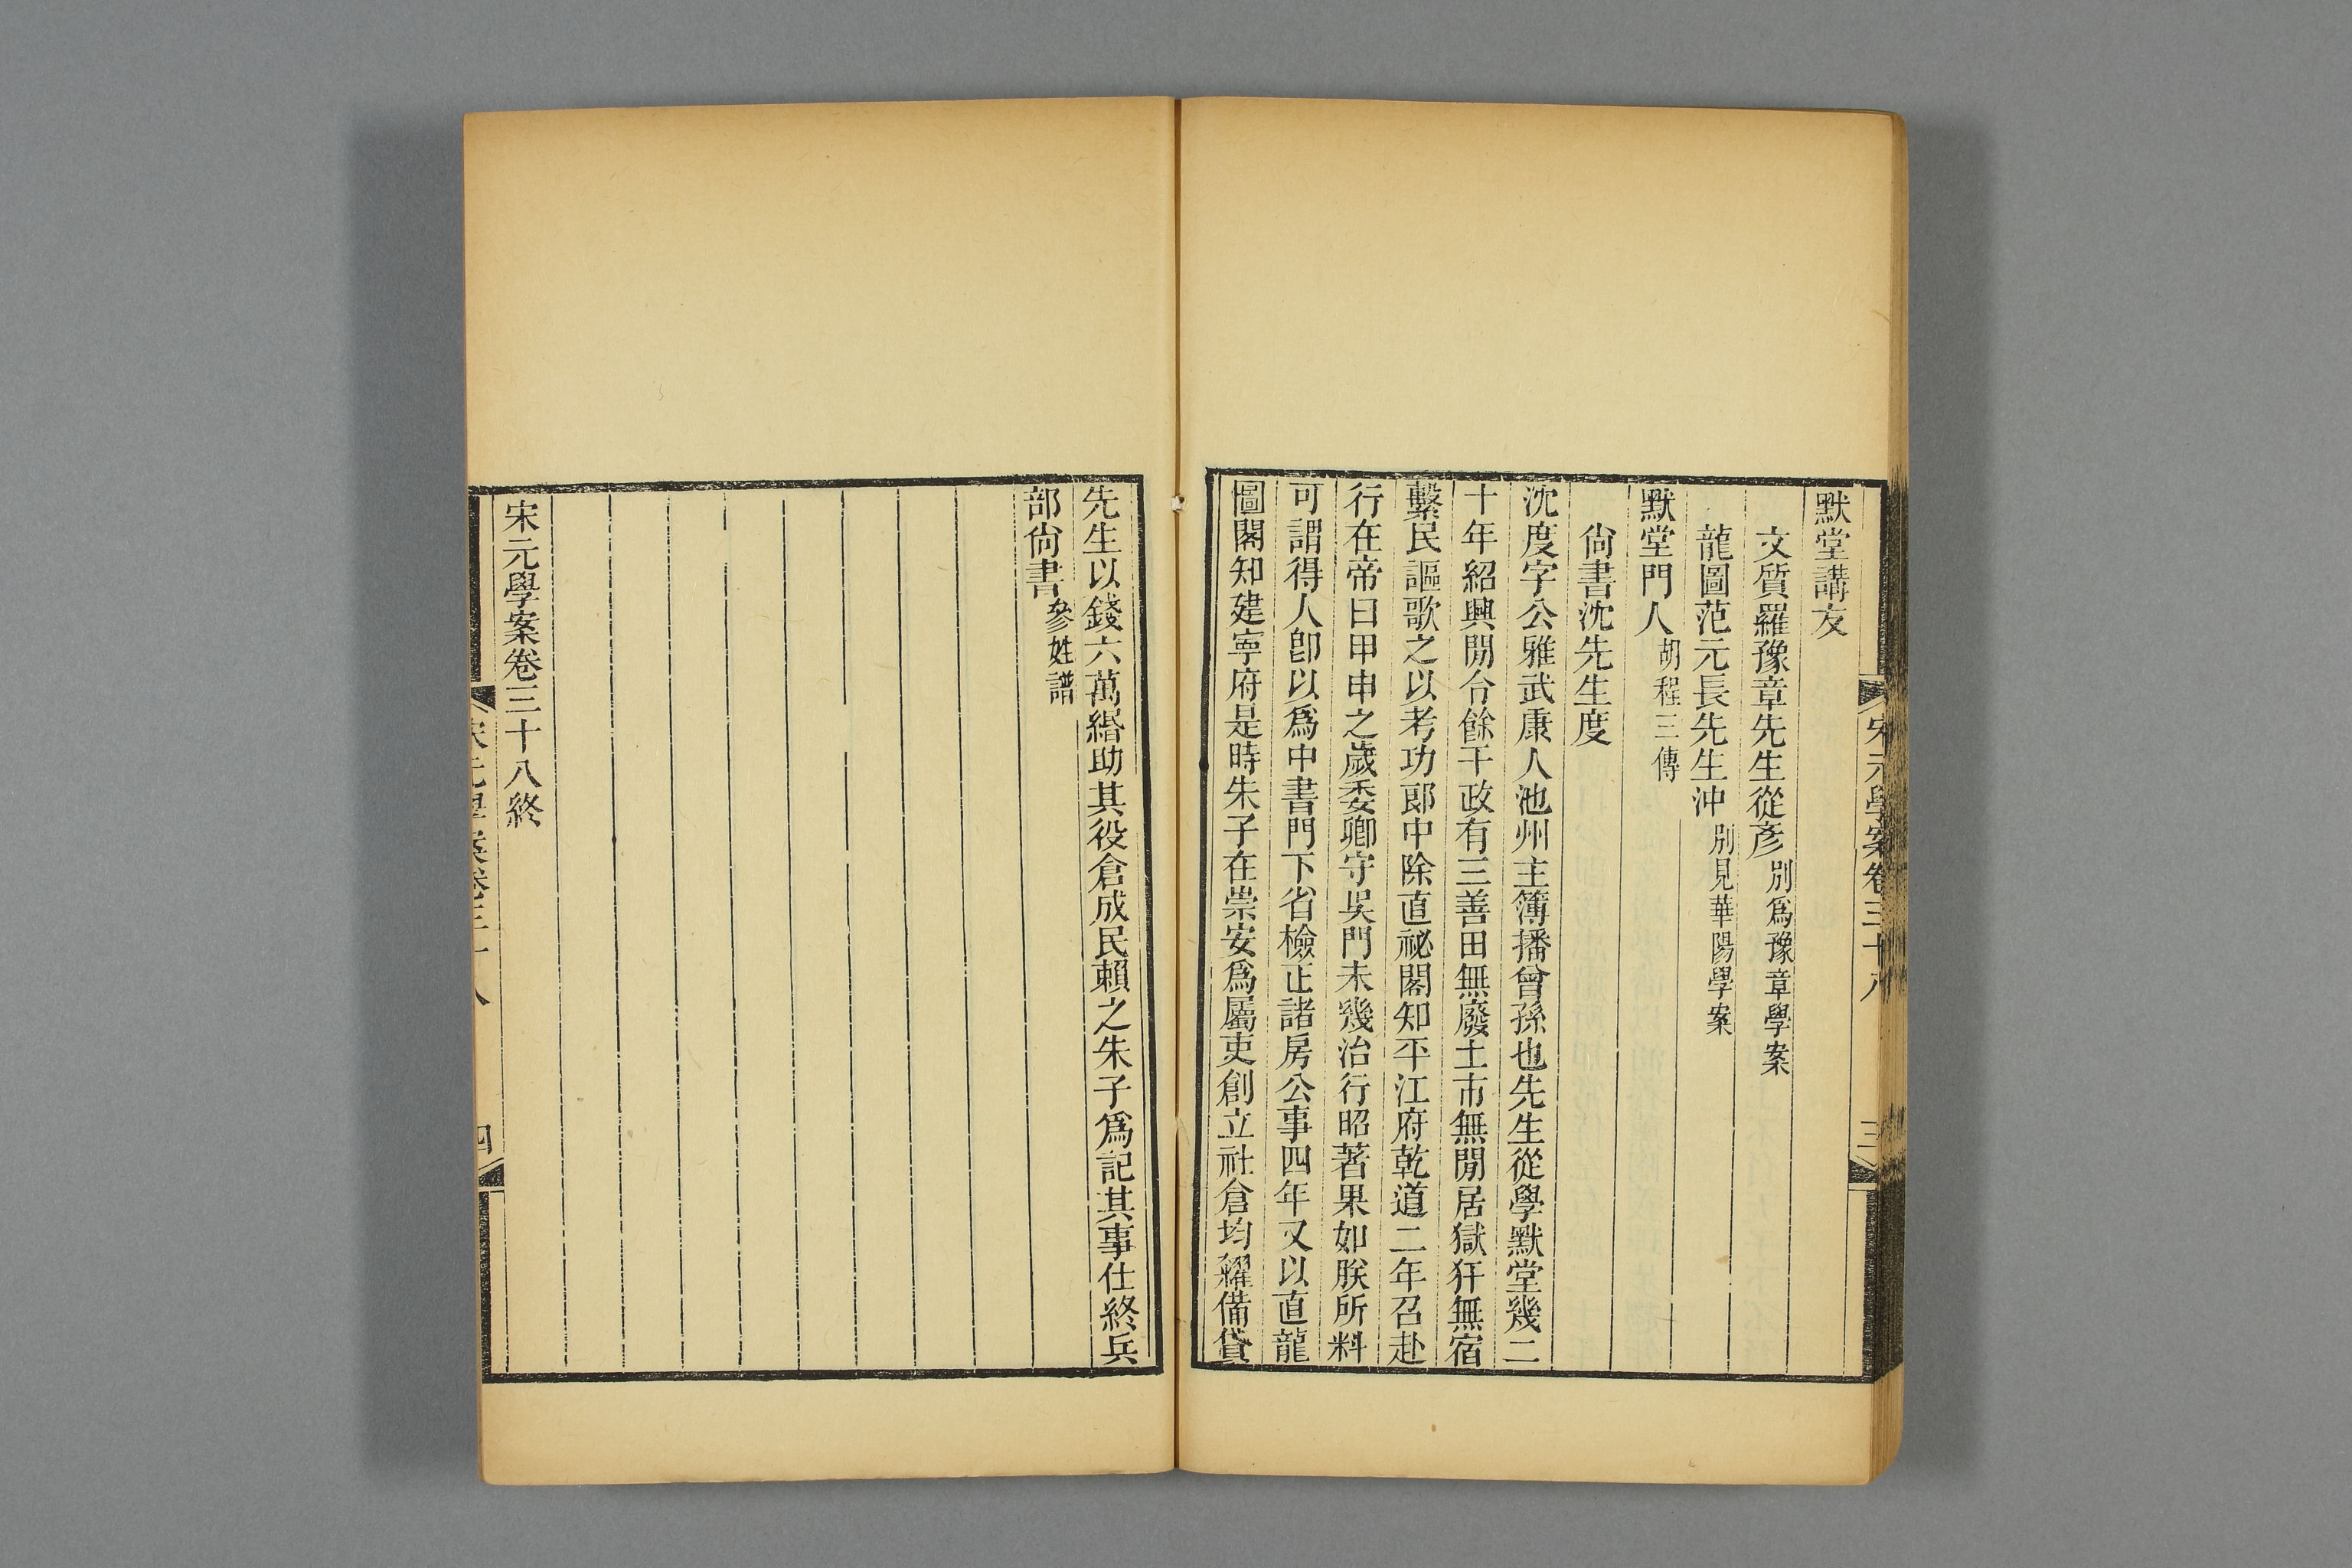 宋元學案卷三十八
三
默堂講友
文質羅豫章先生從彥別爲豫章學案
龍圖范元長先生沖別見華陽學案
默堂門人胡程三傳
尙書沈先生度
沈度字公雅武康人池州主簿播曾孫也先生從學默堂幾二
十年紹興閒令餘干政有三善田無廢土市無閒居獄犴無宿
繫民謳歌之以考功郞中除直祕閣知平江府乾道二年召赴
行在帝曰甲申之歲委卿守吳門未幾治行昭著果如朕所料
可謂得人卽以爲中書門下省檢正諸房公事四年又以直龍
圖閣知建寧府是時朱子在崇安爲屬吏創立社倉均糴備貸
先生以錢六萬緡助其役倉成民賴之朱子爲記其事仕終兵
部尙書參姓譜
宋元學案卷三十八終
宋元學案卷三十八
四